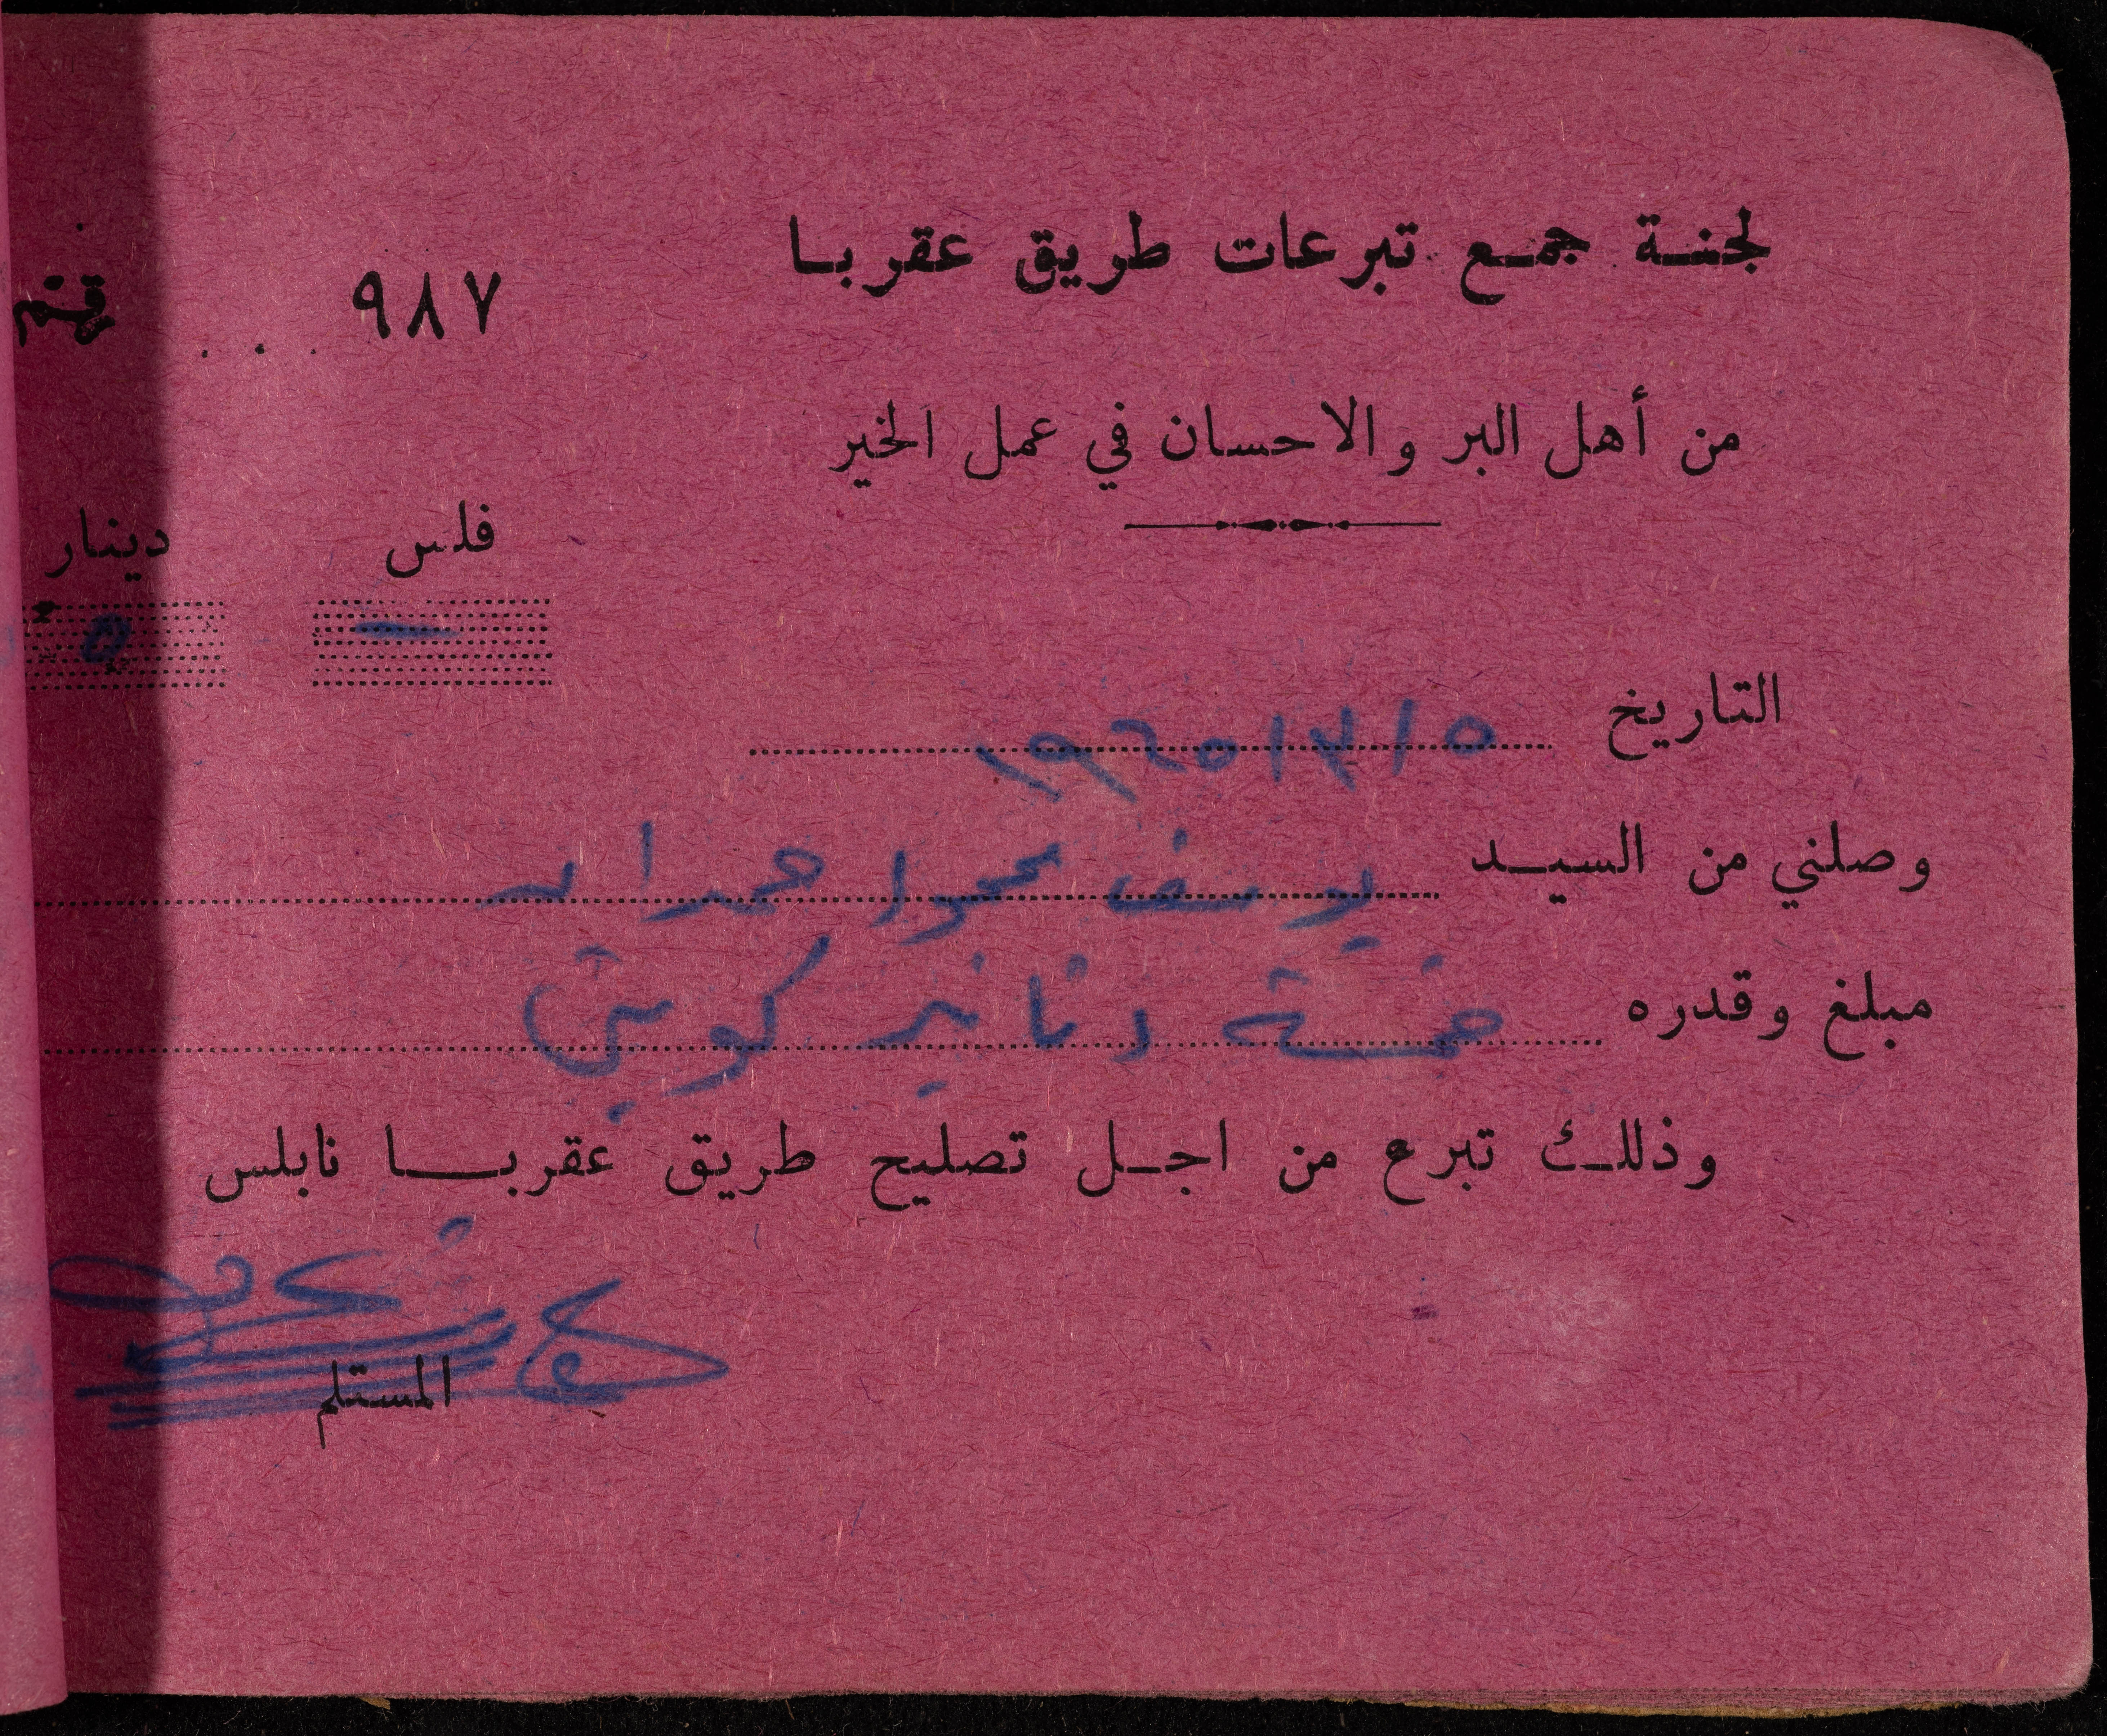 لجنة جمع تبرعات طريق عقربا
٩٨٧ . . .
من أهل البر والاحسان في عمل الخير
فلس دينار
— ٥
التاريخ ٥ / ٣ / ١٩٦٥
وصلني من السيد يوسف محمود حمدالله
مبلغ وقدره خمسة دنانير كويتي
وذلك تبرع من اجل تصليح طريق عقربا نابلس
المستلم